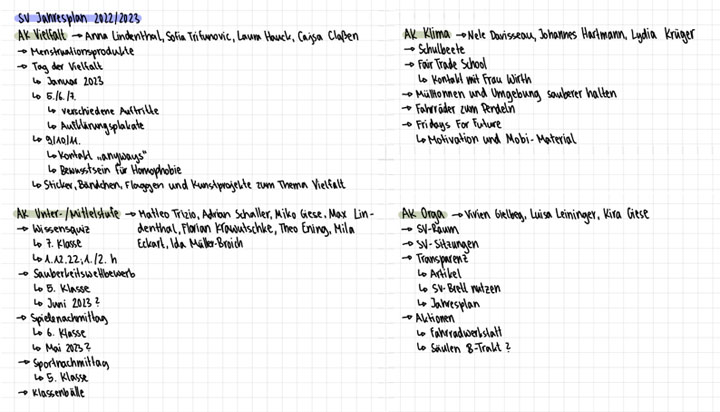 SV Jahresplan 2022/2023
AK Vielfalt → Anna Lindenthal, Sofia Trifunovic, Laura Hauck, Caisa Claßen
→ Menstruationsprodukte
→ Tag der Vielfalt
↳ Januar 2023
↳ 5./6./7.
↳ verschiedene Auftritte
↳ Aufklärungsplakate
↳ 9/10/11.
↳ Kontakt „anyways"
↳ Bewusstsein für Homophobie
↳ Sticker, Bändchen, Flaggen und Kunstprojekte zum Thema Vielfalt
AK Unter-/Mittelstufe → Matteo Trizio, Adrian Schaller, Miko Giese, Max Lin-
denthal, Florian Krawutschke, Theo Ening, Mila
Eckart, Ida Müller-Broich
→ Wissensquiz
↳ 7. Klasse
↳ 1.12.22, 1./2. h
→ Sauberkeitswettbewerb
↳ 5. Klasse
↳ Juni 2023?
→ Spielenachmittag
↳ 6. Klasse
↳ Mai 2023?
→ Sportnachmittag
↳ 5. Klasse
→ Klassenbälle
AK Klima → Nele Davisseau, Johannes Hartmann, Lydia Krüger
→ Schulbeete
→ Fair Trade School
↳ Kontakt mit Frau Wirth
→ Mülltonnen und Umgebung sauberer halten
→ Fahrräder zum Pendeln
→ Fridays For Future
↳ Motivation und Mobi-Material
AK Orga → Vivien Gielberg, Luisa Leininger, Kira Giese
→ SV-Raum
→ SV-Sitzungen
→ Transparenz
↳ Artikel
↳ SV-Brett nutzen
↳ Jahresplan
→ Aktionen
↳ Fahrradwerkstatt
↳ Säulen B-Trakt?